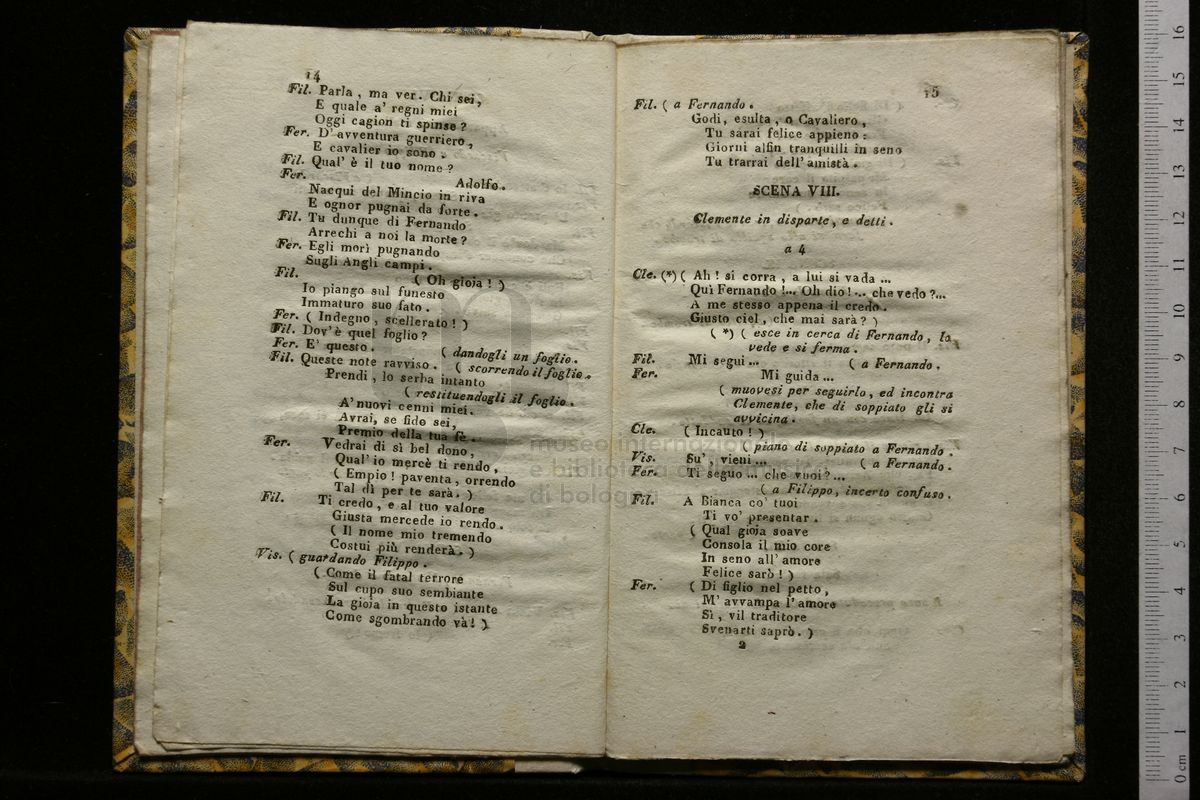 14
Fil. Parla, ma ver. Chi sei,
E quale a' regni miei
Oggi cagion ti spinse?
Fer. D' avventura guerriero,
E cavalier io sono.
Fil. Qual' è il tuo nome?
Fer. Adolfo.
Nacqui del Mincio in riva
E ognor pugnai da forte.
Fil. Tu dunque di Fernando
Arrechi a noi la morte?
Fer. Egli morì pugnando
Sugli Angli campi.
Fil. ( Oh gioia! )
Io piango sul funesto
Immaturo suo fato.
Fer. ( Indegno, scellerato! )
Fil. Dov'è quel foglio?
Fer. E' questo. ( dandogli un foglio.
Fil. Queste note ravviso. ( scorrendo il foglio.
Prendi, lo serba intanto
( restituendogli il foglio.
A' nuovi cenni miei.
Avrai, se fido sei,
Premio della tua fè.
Fer. Vedrai di sì bel dono,
Qual' io mercè ti rendo,
( Empio! paventa, orrendo
Tal dì per te sarà. )
Fil. Ti credo, e al tuo valore
Giusta mercede io rendo.
( Il nome mio tremendo
Costui più renderà. )
Vis. ( guardando Filippo.
( Come il fatal terrore
Sul cupo suo sembiante
La gioia in questo istante
Come sgombrando và! )
15
Fil. ( a Fernando.
Godi, esulta, o Cavaliero,
Tu sarai felice appieno:
Giorni alfin tranquilli in seno
Tu trarrai dell' amistà.
SCENA VIII.
Clemente in disparte, e detti.
a 4
Cle. (*) ( Ah! si corra, a lui si vada ...
Quì Fernando!... Oh dio!... che vedo?...
A me stesso appena il credo.
Giusto ciel, che mai sarà? )
( *) ( esce in cerca di Fernando, lo
vede e si ferma.
Fil. Mi segui ... ( a Fernando.
Fer. Mi guida ...
( muovesi per seguirlo, ed incontra
Clemente, che di soppiato gli si
avvicina.
Cle. ( Incauto! )
( piano di soppiato a Fernando.
Vis. Su', vieni ... ( a Fernando.
Fer. Ti seguo ... che vuoi? ...
( a Filippo, incerto confuso.
Fil. A Bianca co' tuoi
Ti vo' presentar.
( Qual gioja soave
Consola il mio core
In seno all' amore
Felice sarò! )
Fer. ( Di figlio nel petto,
M' avvampa l' amore
Sì, vil traditore
Svenarti saprò. )
2
museo internazionale
e biblioteca della musica
di bologna
0 cm 1 2 3 4 5 6 7 8 9 10 11 12 13 14 15 16